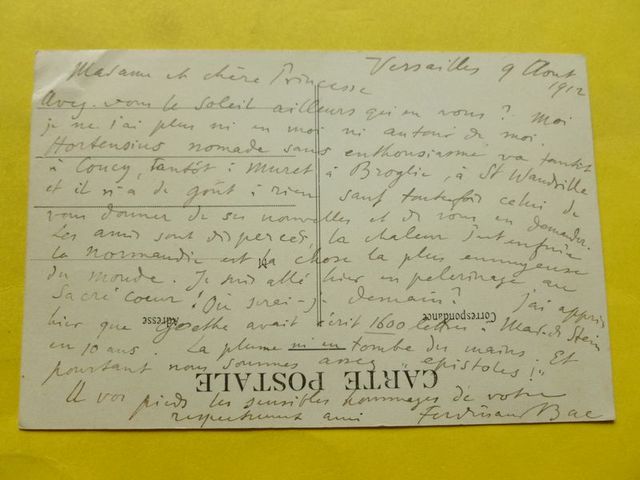 Versailles 9 Août
1912
Madame et chère Princesse
Avez-vous le soleil ailleurs qu'en vous? Moi
je ne l'ai plus ni en moi ni autour de moi.
Hortensius nomade sans enthousiasme va tantôt
à Coucy, tantôt à Muret à Broglie, à St Wandrille
et il n'a de goût à rien sauf toutefois celui de
vous donner de ses nouvelles et de vous en demander.
Les amis sont dispercés, la chaleur s'est enfuie
la Normandie est la chose la plus ennuyeuse
du monde. Je suis allé hier en pelerinage au
Sacré Coeur! Où serai-je demain? J'ai appris
hier que Goethe avait écrit 1600 lettres à Mad. de Stein
en 10 ans. La plume m'en tombe des mains. Et
pourtant nous sommes assez "epistoles"!
A vos pieds les sensibles hommages de votre
respectueux ami Ferdinand Bac
CARTE POSTALE
Correspondance
Adresse
M